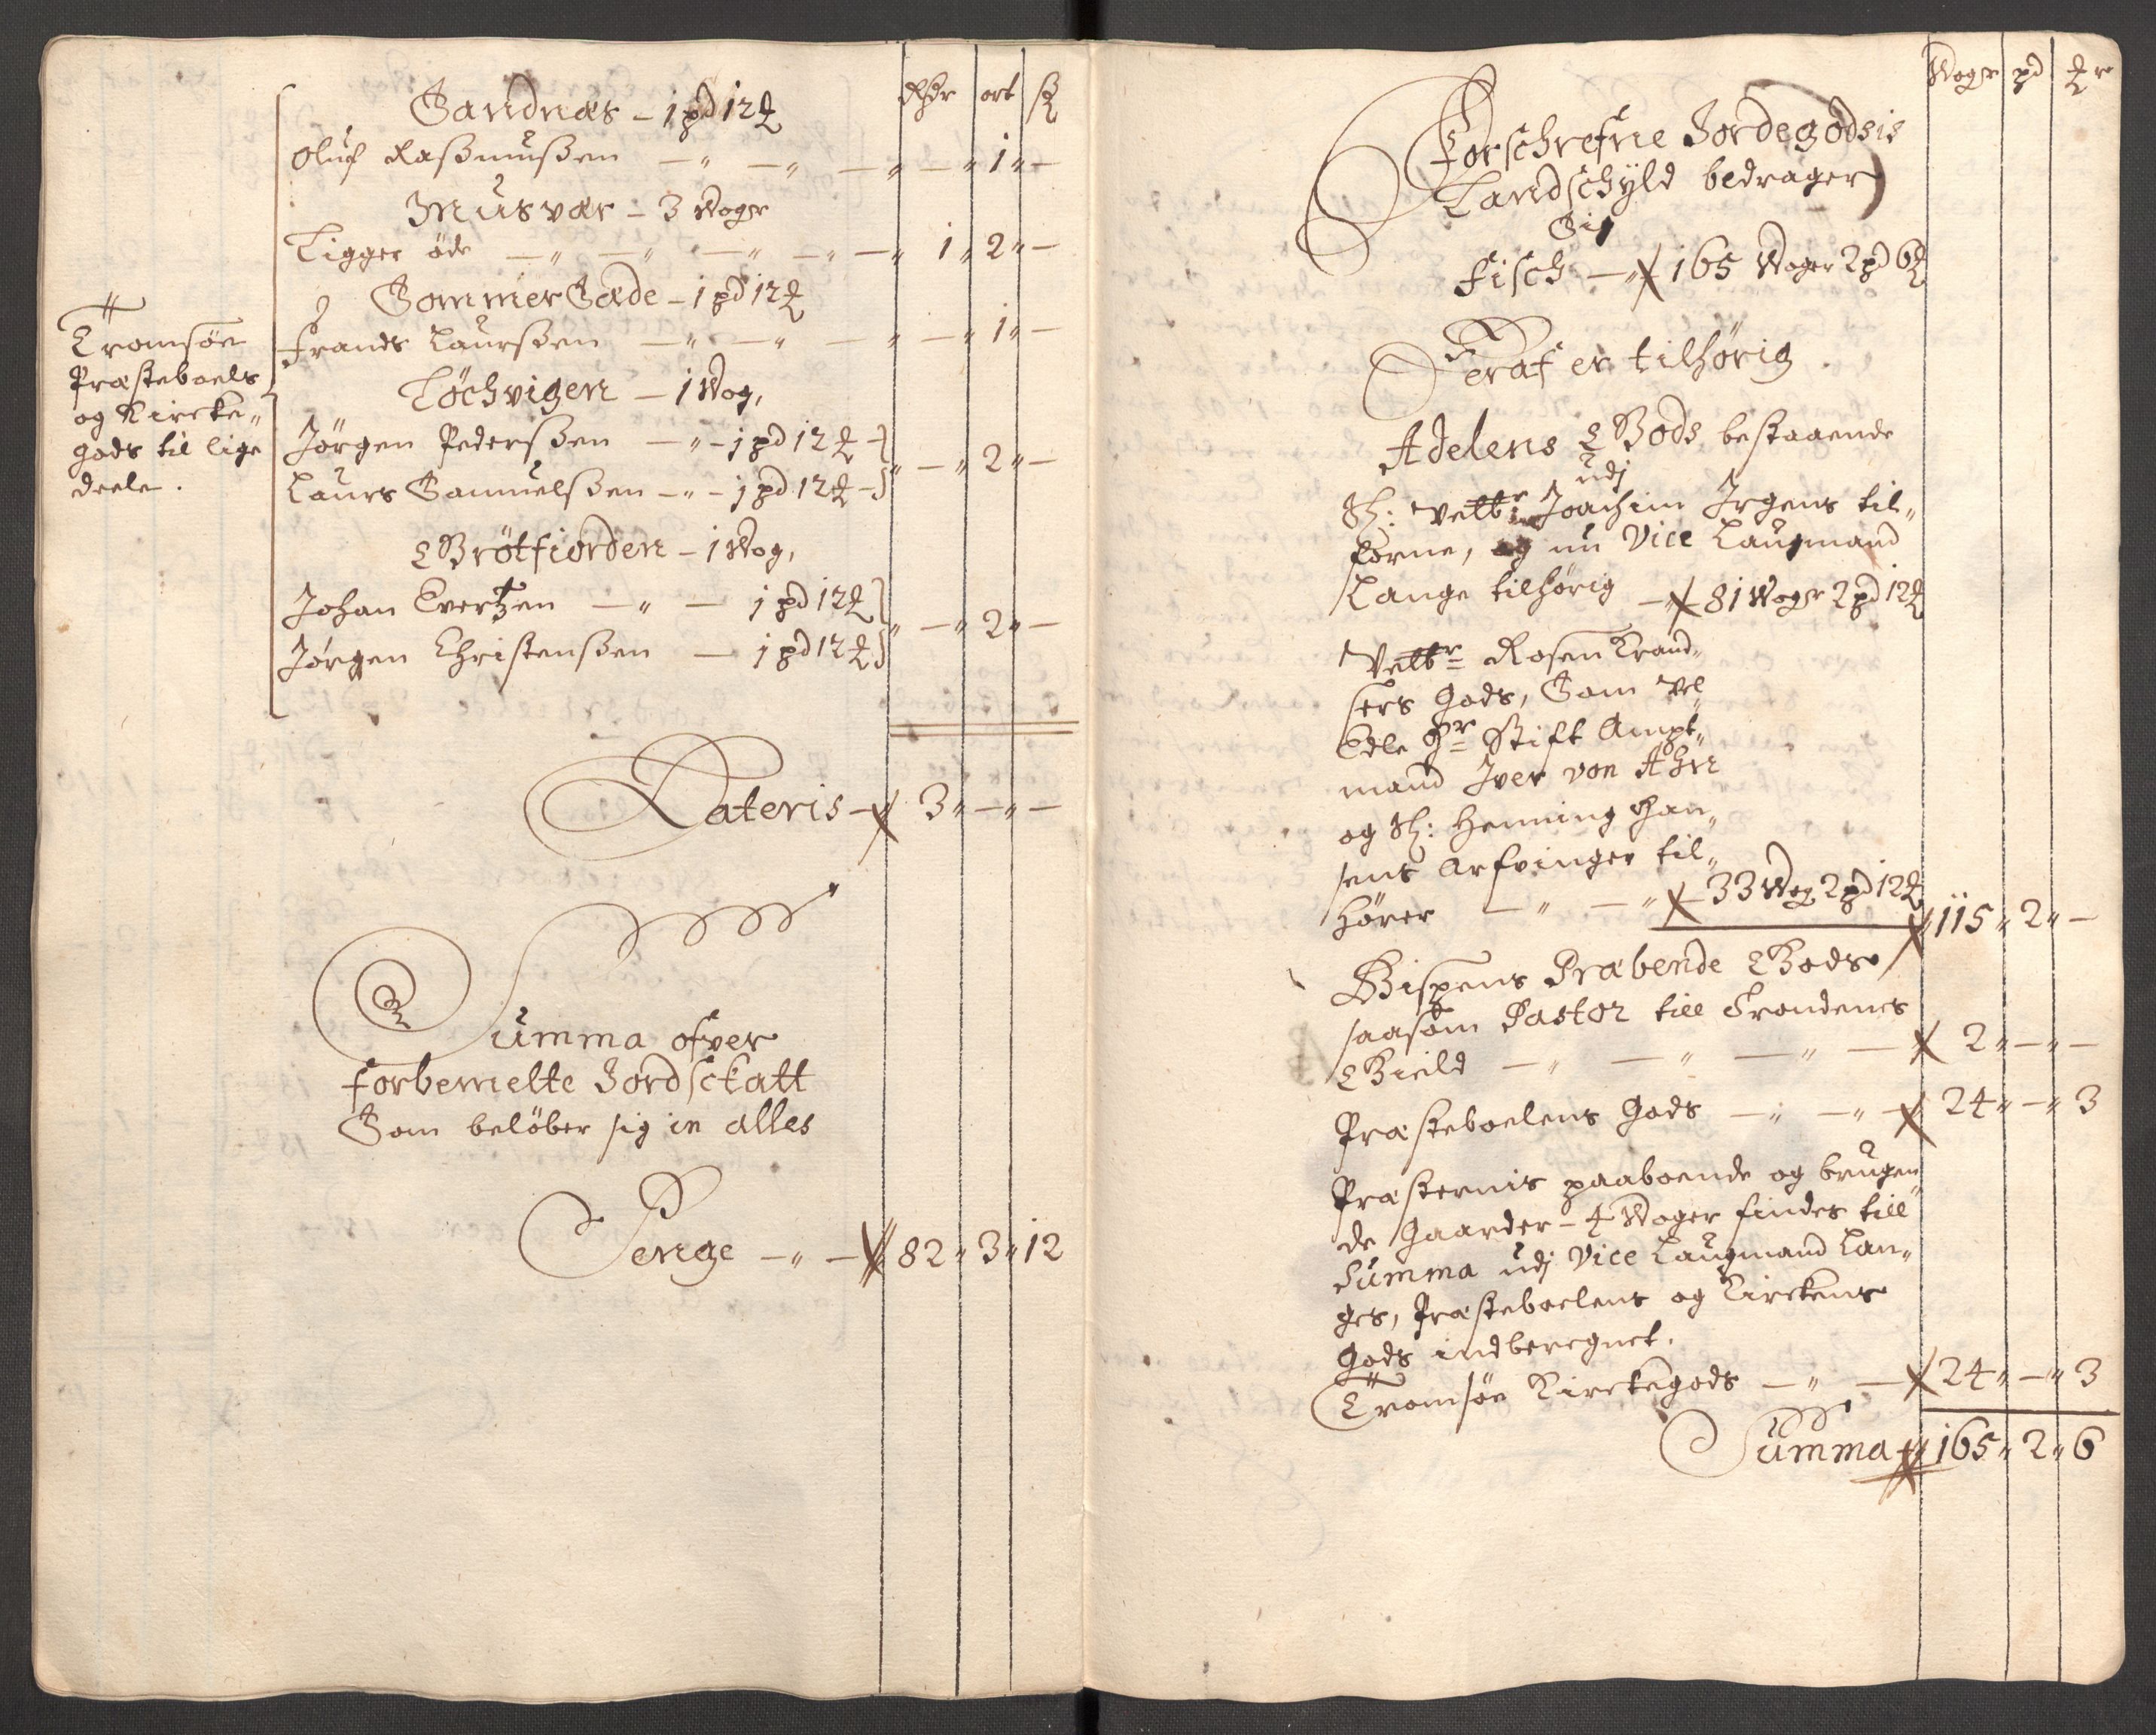 Rdr ort ß
Sandnæs – 1 pd 12 ℔
Oluf Rasmusßen — „ — „ — „ — „ 1 „ —
Musvær – 3 Woger
Ligger øde — „ — „ — „ — „ — „ 1 „ 2 „ —
SommerSæde – 1 pd 12 ℔
Frands Laursßen — „ — „ — „ — „ 1 „ —
Tromsøe
Præsteboels
og Kircke„
gods til lige
deele.
Löchvigen – 1 Wog,
Jörgen Pedersßen — „ – 1 pd 12 ℔ –
Laurs Samuelsßen – „ – 1 pd 12 ℔ – „ — „ 2 „ —
Brötfiorden – 1 Wog,
Johan Evertzen — „ — 1 pd 12 ℔
Jørgen Christensßen — 1 pd 12 ℔ „ — „ 2 „ —
Lateris — 3 „ — „ —
Summa ofver
forbemelte Jordsckatt
Som beløber sig in alles
Penge — „ — 82 „ 3 „ 12
Woger pd ℔r
Forschrefne Jordegodsis
Landschyld bedrager
Sig
Fisch — 165 Woger 2 pd 6 ℔
Deraf er tilhörig
Adelens Gods bestaaende
udj
Sl: Velb: Joachim Jrgens til„
forne, og nu Vice Laugmand
Lange tilhörig — 81 Woger 2 pd 12 ℔
Velbr Rosen Krand„
sers Gods, Som Vel
Edle Hr Stift Ampt„
mand Iver von Ahn
og Sl: Henning Han„
sens Arfvinger til„
hörer — „ — „ 33 Wog 2 pd 12 ℔ 115 „ 2 „ —
Bispens Præbende Gods
saasom Pastor till Trondenes
Gield — „ — „ — „ — 2 „ — „ —
Præsteboelens Gods — „ — „ — 24 „ — „ 3
Præsternis paaboende og brugen„
de Gaarder – 4 Woger findes till
Summa udj Vice Laugmand Lan„
ges, Præsteboelens og Kirckens
Gods indberegnet.
Tromsøe Kirckegods — „ — 24 „ — „ 3
Summa 165 „ 2 „ 6